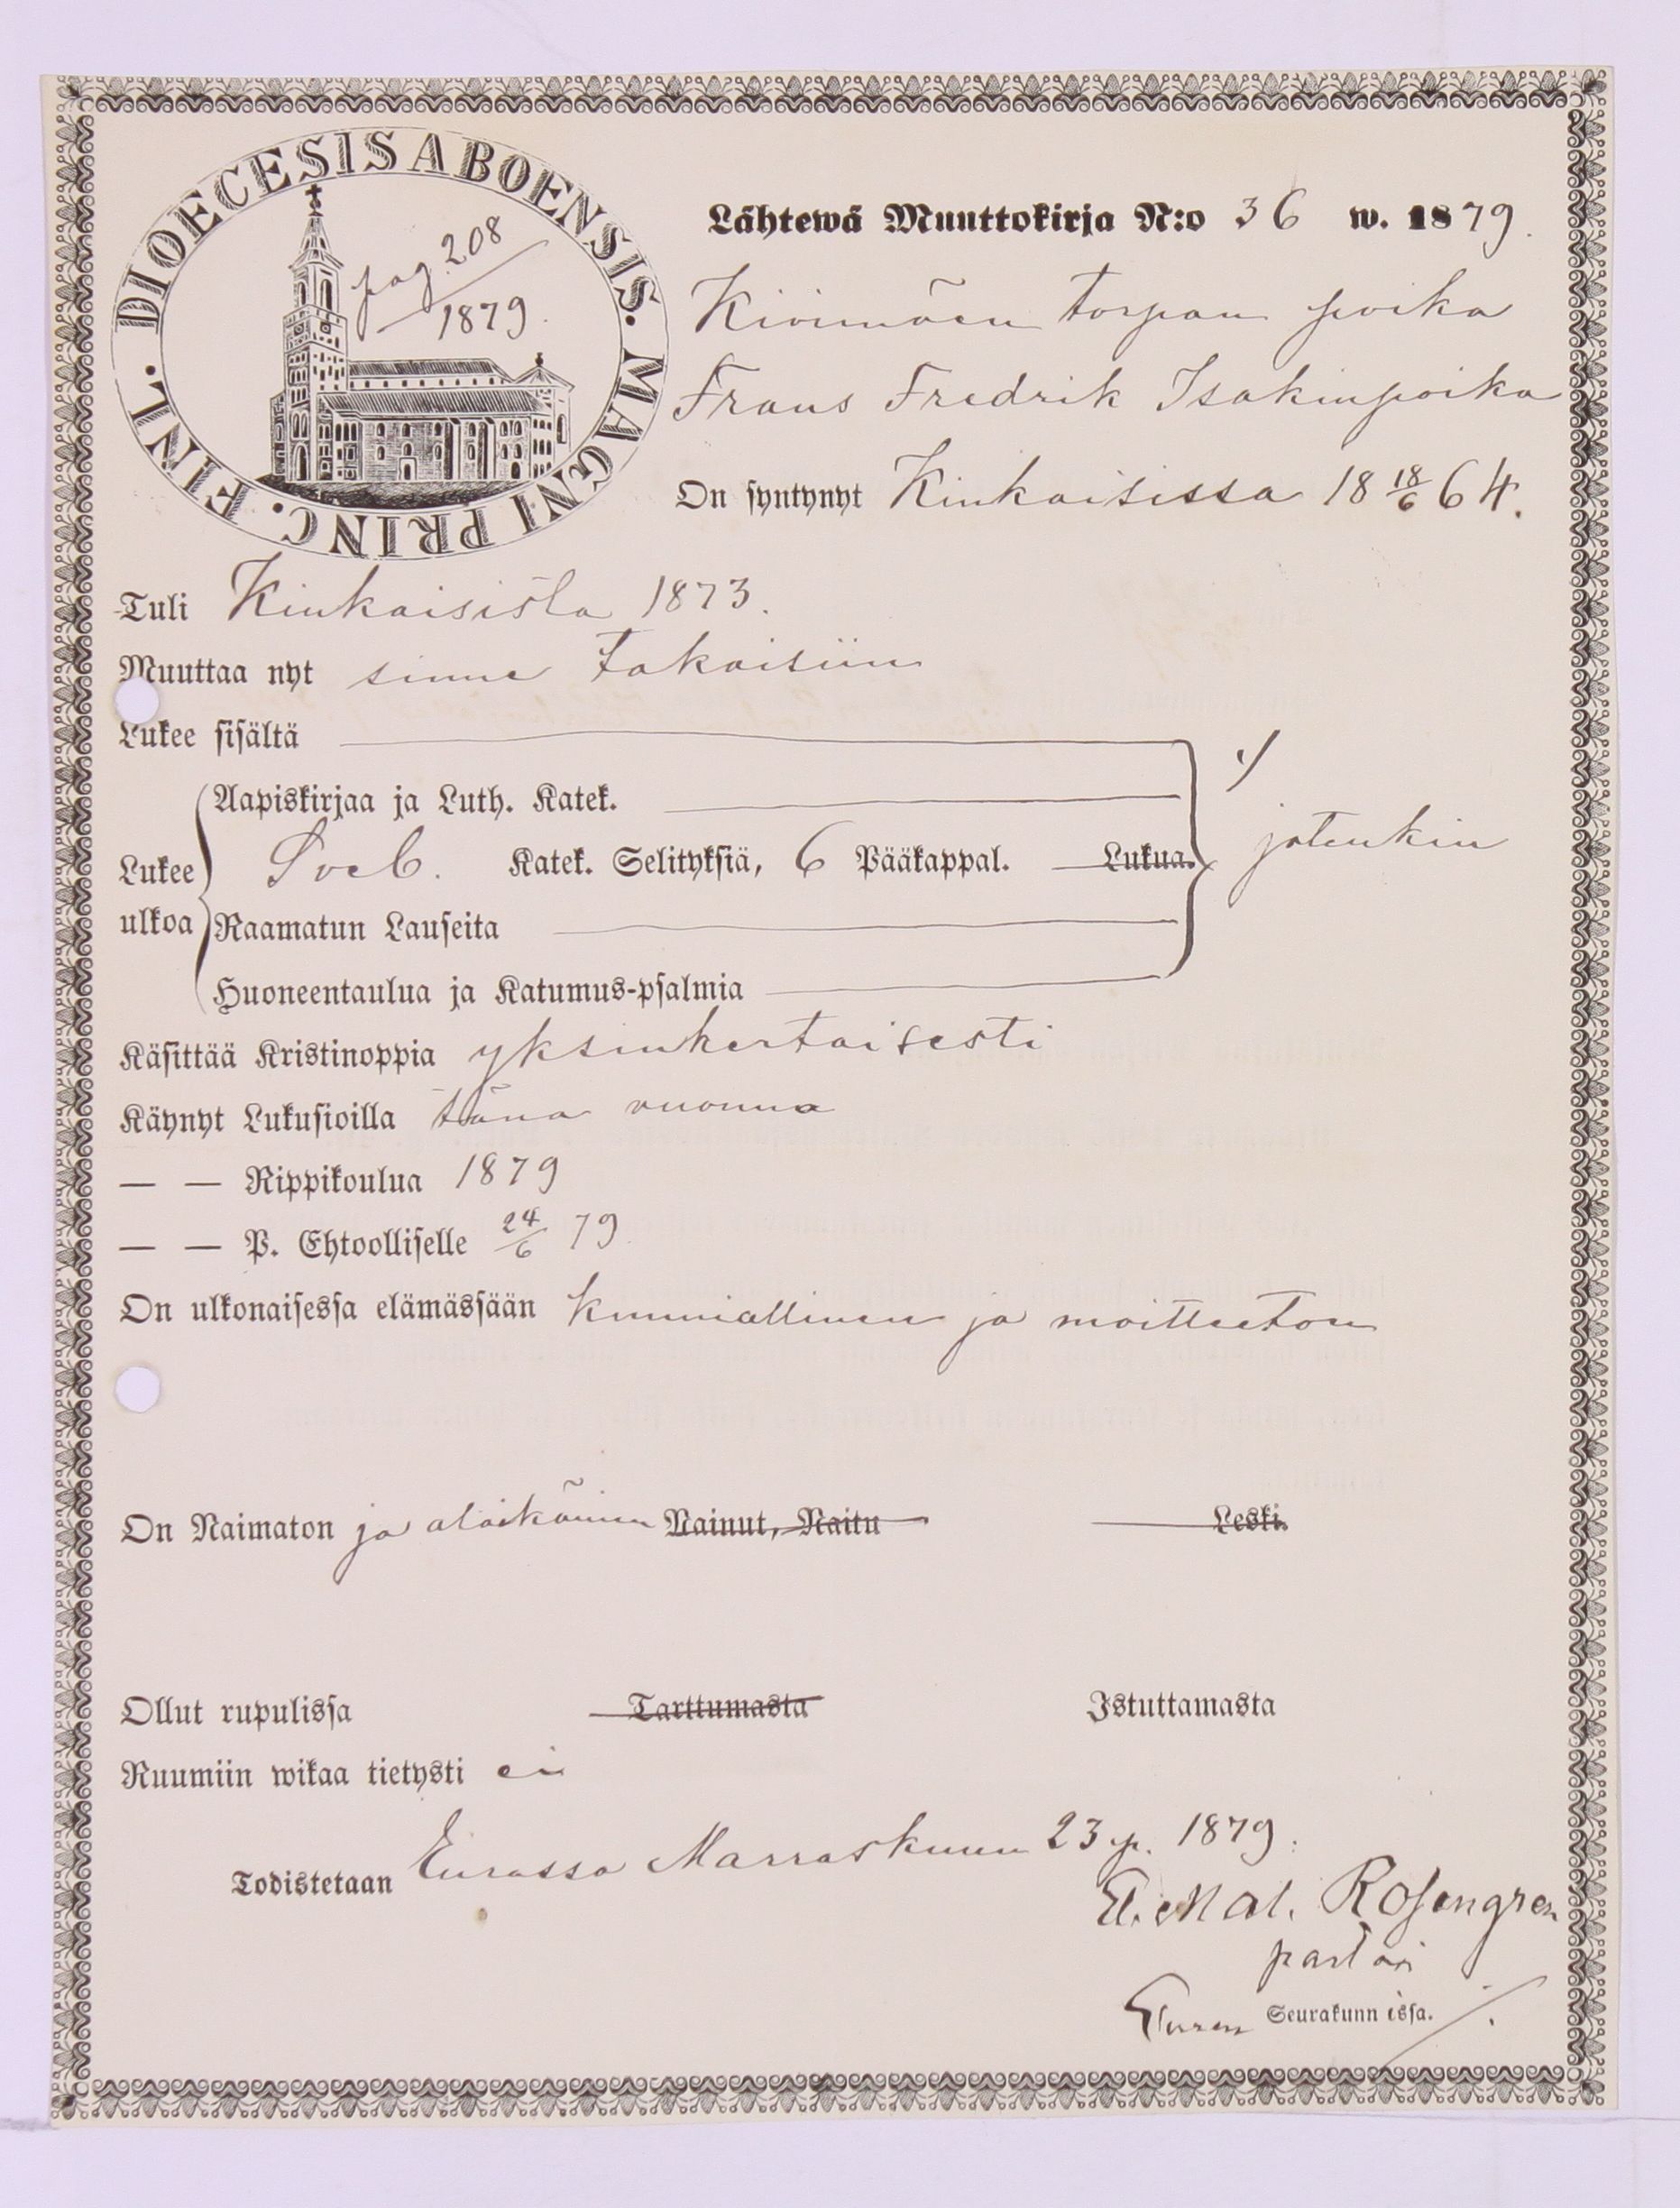 DIOECESIS ABOENSIS. MAGNI PRINC. FINL.
pag. 208
1879.
Lähtewä Muuttokirja N:o 36 w. 1879.
Kiwimäen torpan poika
Frans Fredrik Isakinpoika
On syntynyt Kiukaisissa 18 18/6 64.
Tuli Kiukaisista 1873.
Muuttaa nyt sinne takaisiin
Lukee sisältä
Aapiskirjaa ja Luth. Katek.
Lukee ulkoa Sveb. Katek. Selityksiä, 6 Pääkappal. Lukua. jotenkin
Raamatun Lauseita
Huoneentaulua ja Katumus-psalmia
Käsittää Kristinoppia yksinkertaisesti
Käynyt Lukusioilla tänä vuonna
— — Rippikoulua 1879
— — P. Ehtoolliselle 24/6 79
On ulkonaisessa elämässään kunniallinen ja moitteeton
On Naimaton ja alaikäinen Nainut, Naitu Leski.
Ollut rupulissa Tarttumasta Istuttamasta
Ruumiin wikaa tietysti ei
Todistetaan Eurassa Marraskuun 23 p. 1879.
Rosengren
pastori
Euran Seurakunnissa.